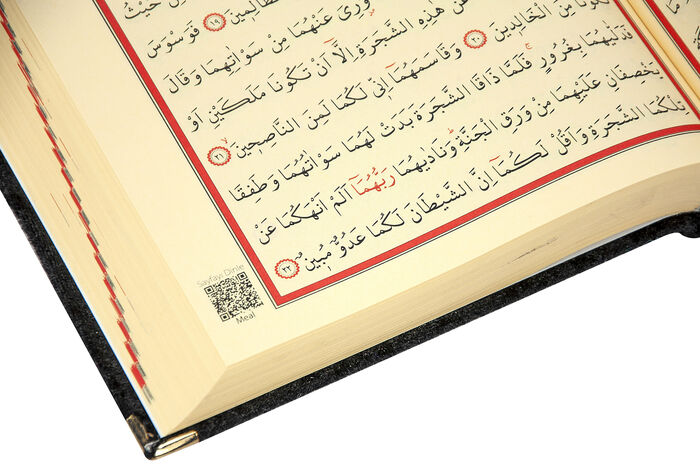 حَيْثُ
الظَّالِمِينَ ١٩ فَوَسْوَسَ
وُرِىَ عَنْهُمَا مِنْ سَوْاٰتِهِمَا وَقَالَ
عَنْ هٰذِهِ الشَّجَرَةِ اِلَّٓا اَنْ تَكُونَا مَلَكَيْنِ اَوْ
تَكُونَا مِنَ الْخَالِدِينَ ٢٠ وَقَاسَمَهُمَٓا اِنّ۪ى لَكُمَا لَمِنَ النَّاصِح۪ينَ ٢١
فَدَلّٰيهُمَا بِغُرُورٍ فَلَمَّا ذَاقَا الشَّجَرَةَ بَدَتْ لَهُمَا سَوْاٰتُهُمَا وَطَفِقَا
يَخْصِفَانِ عَلَيْهِمَا مِنْ وَرَقِ الْجَنَّةِ وَنَادٰيهُمَا رَبُّهُمَٓا اَلَمْ اَنْهَكُمَا عَنْ
تِلْكُمَا الشَّجَرَةِ وَاَقُلْ لَكُمَٓا اِنَّ الشَّيْطَانَ لَكُمَا عَدُوٌّ مُب۪ينٌ ٢٢
Sayfayı Dinle
Meal